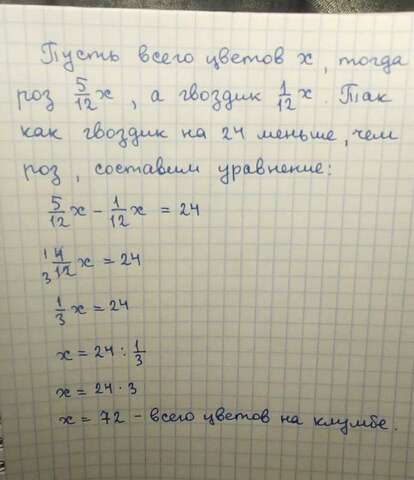 Пусть всего цветов x, тогда
роз 5/12 x, а гвоздик 1/12 x. Так
как гвоздик на 24 меньше, чем
роз, составим уравнение:
5/12 x - 1/12 x = 24
1 4/12 3 x = 24
1/3 x = 24
x = 24 : 1/3
x = 24 · 3
x = 72 - всего цветов на клумбе.